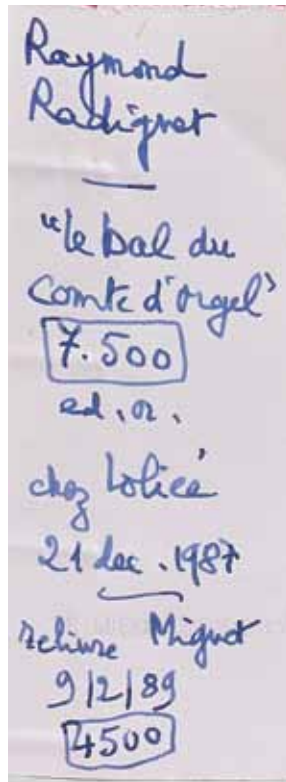 Raymond
Radiguet
"le bal du
Comte d'orgel"
7.500
ed. or.
chez Loliée
21 dec. 1987
reliure Miguet
9/2/89
4500